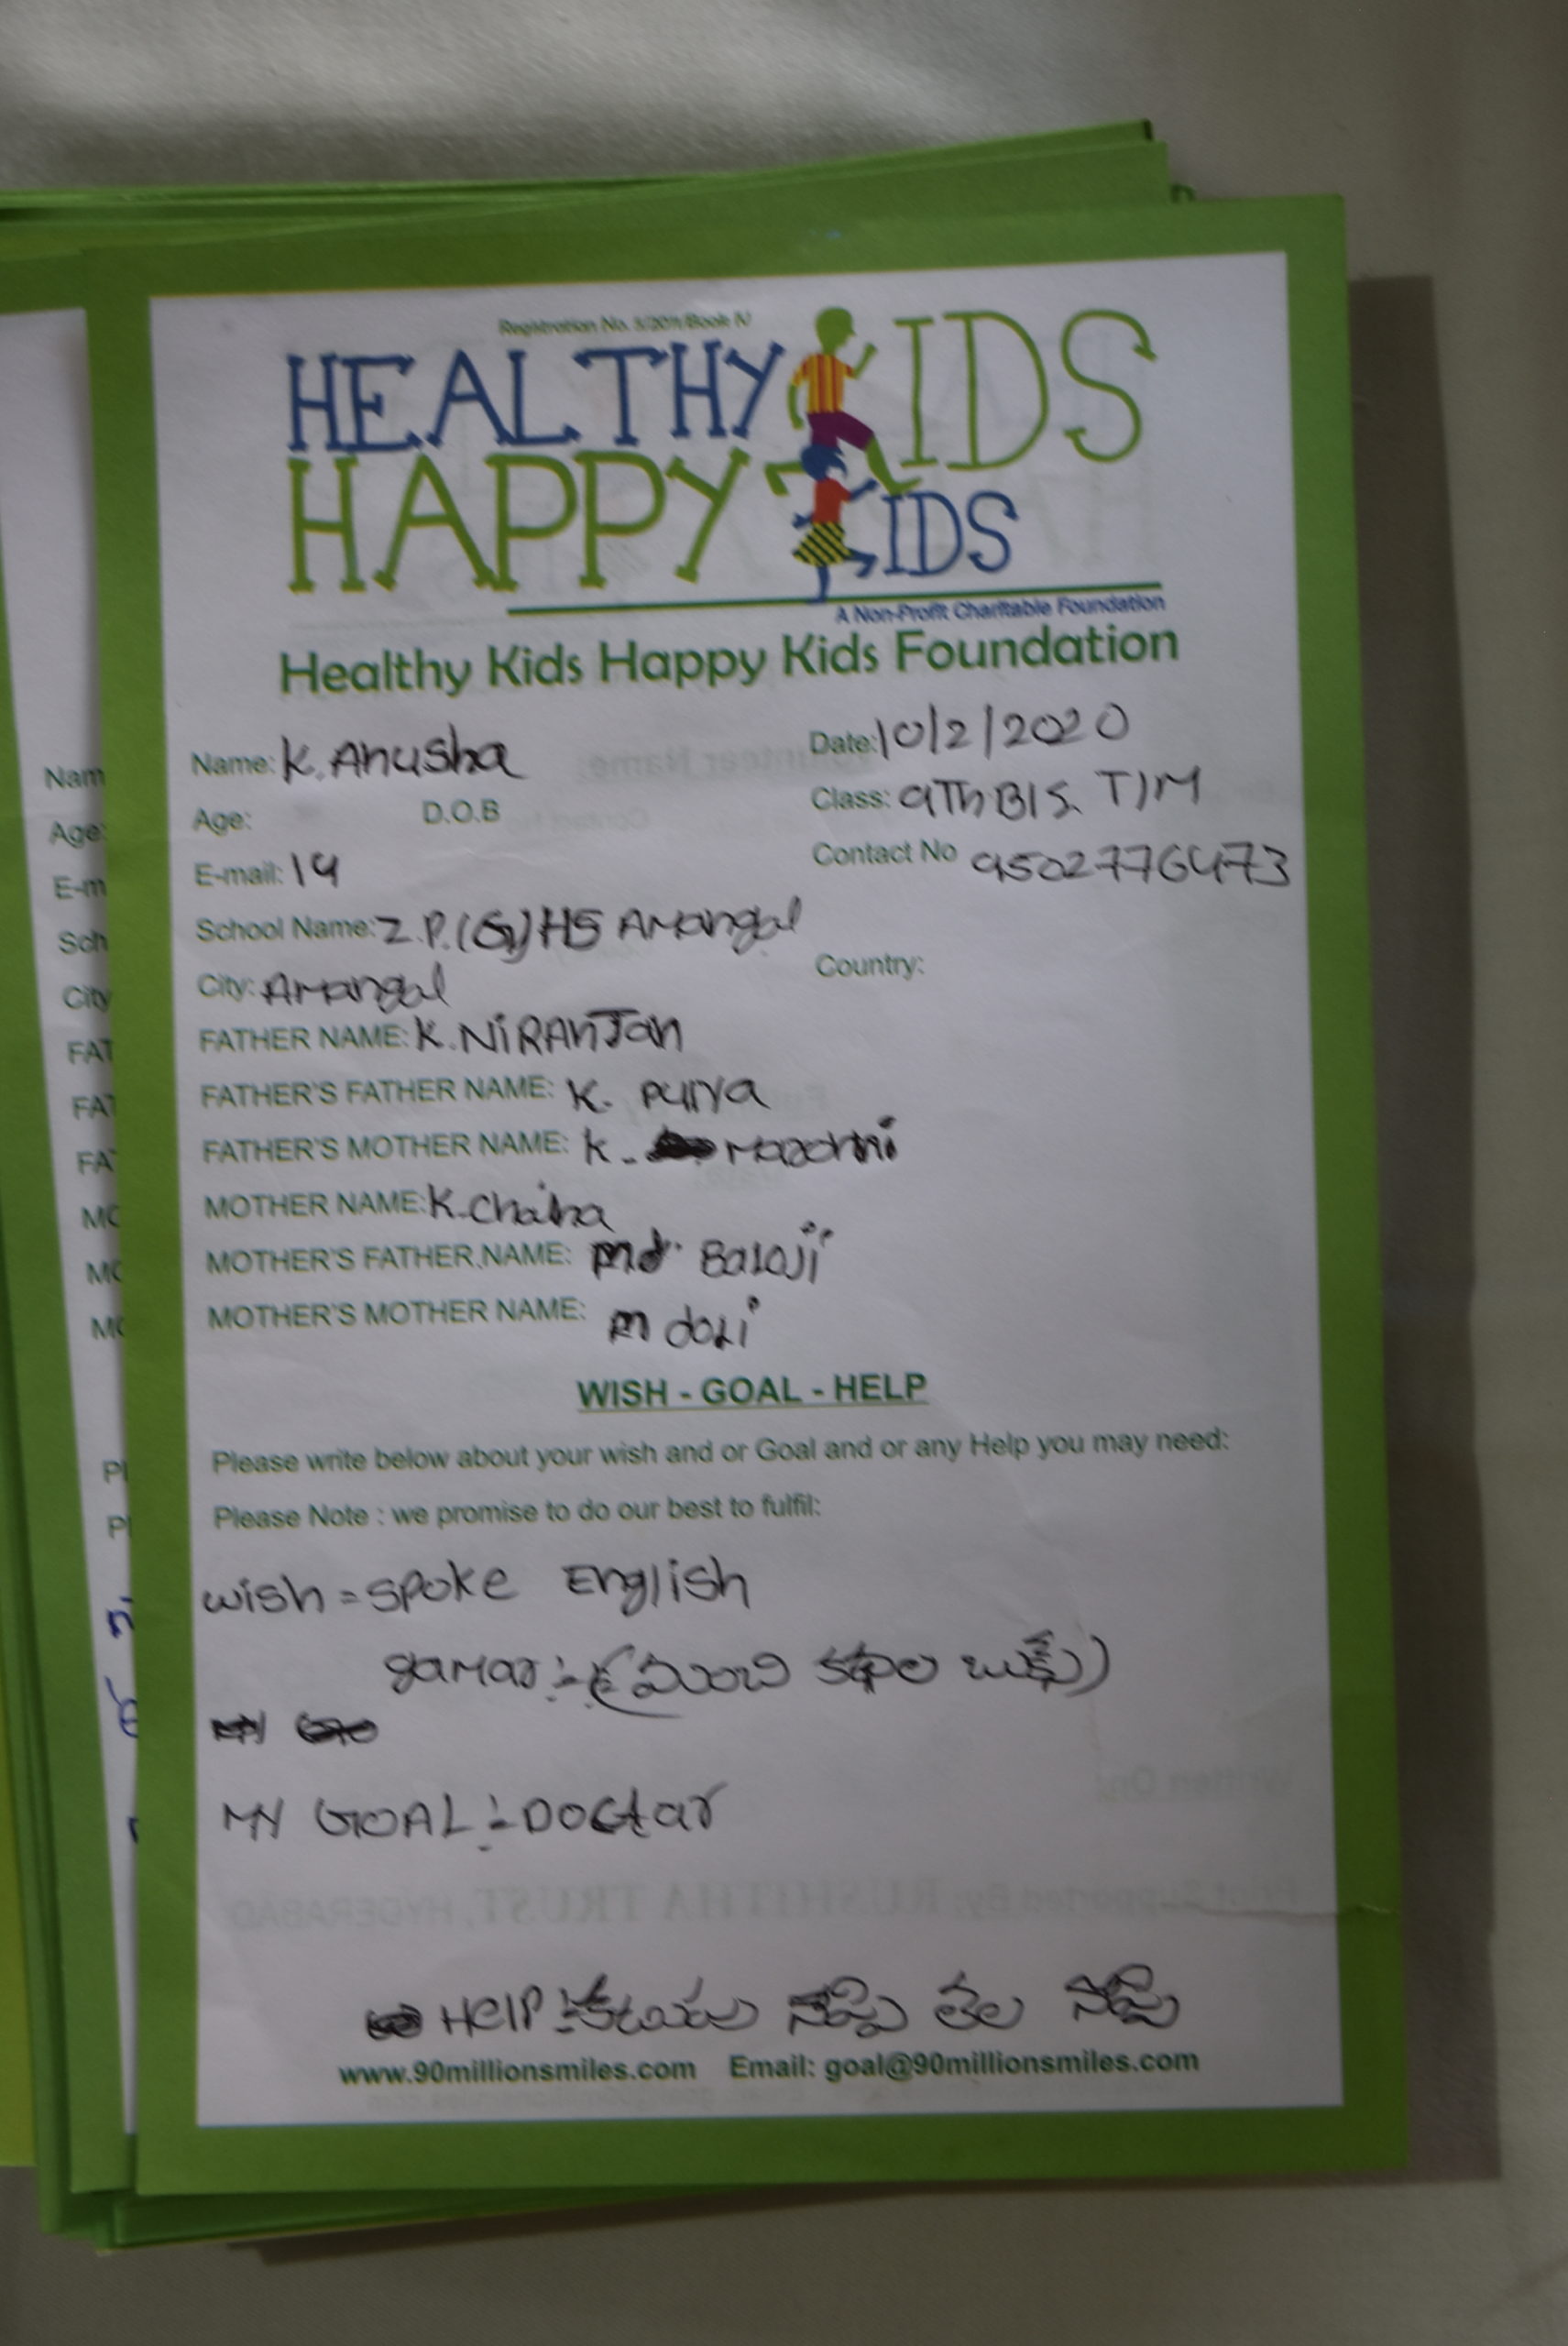 Registration No. 5/2011/Book IV
HEALTHY KIDS
HAPPY KIDS
A Non-Profit Charitable Foundation
Healthy Kids Happy Kids Foundation
Name: K. Anusha Date: 10/2/2020
Age: D.O.B Class: 9Th B/S. T/M
E-mail: 14 Contact No 9502776473
School Name: Z.P.(G)HS Amangal
City: Amangal Country:
FATHER NAME: K. NiRAnJan
FATHER'S FATHER NAME: K.
FATHER'S MOTHER NAME: K.
MOTHER NAME: K.
MOTHER'S FATHER NAME: Balaji
MOTHER'S MOTHER NAME: m
WISH - GOAL - HELP
Please write below about your wish and or Goal and or any Help you may need:
Please Note : we promise to do our best to fulfil:
wish = spoke English
gamar :- (మంచి కథల బుక్స్)
MY GOAL :- Doctar
HelP :- నొప్పి తల నొప్పి
www.90millionsmiles.com Email: goal@90millionsmiles.com
Nam
Age:
E-m
Sch
City
FAT
FAT
FA
MO
MO
MO
Pl
Pl